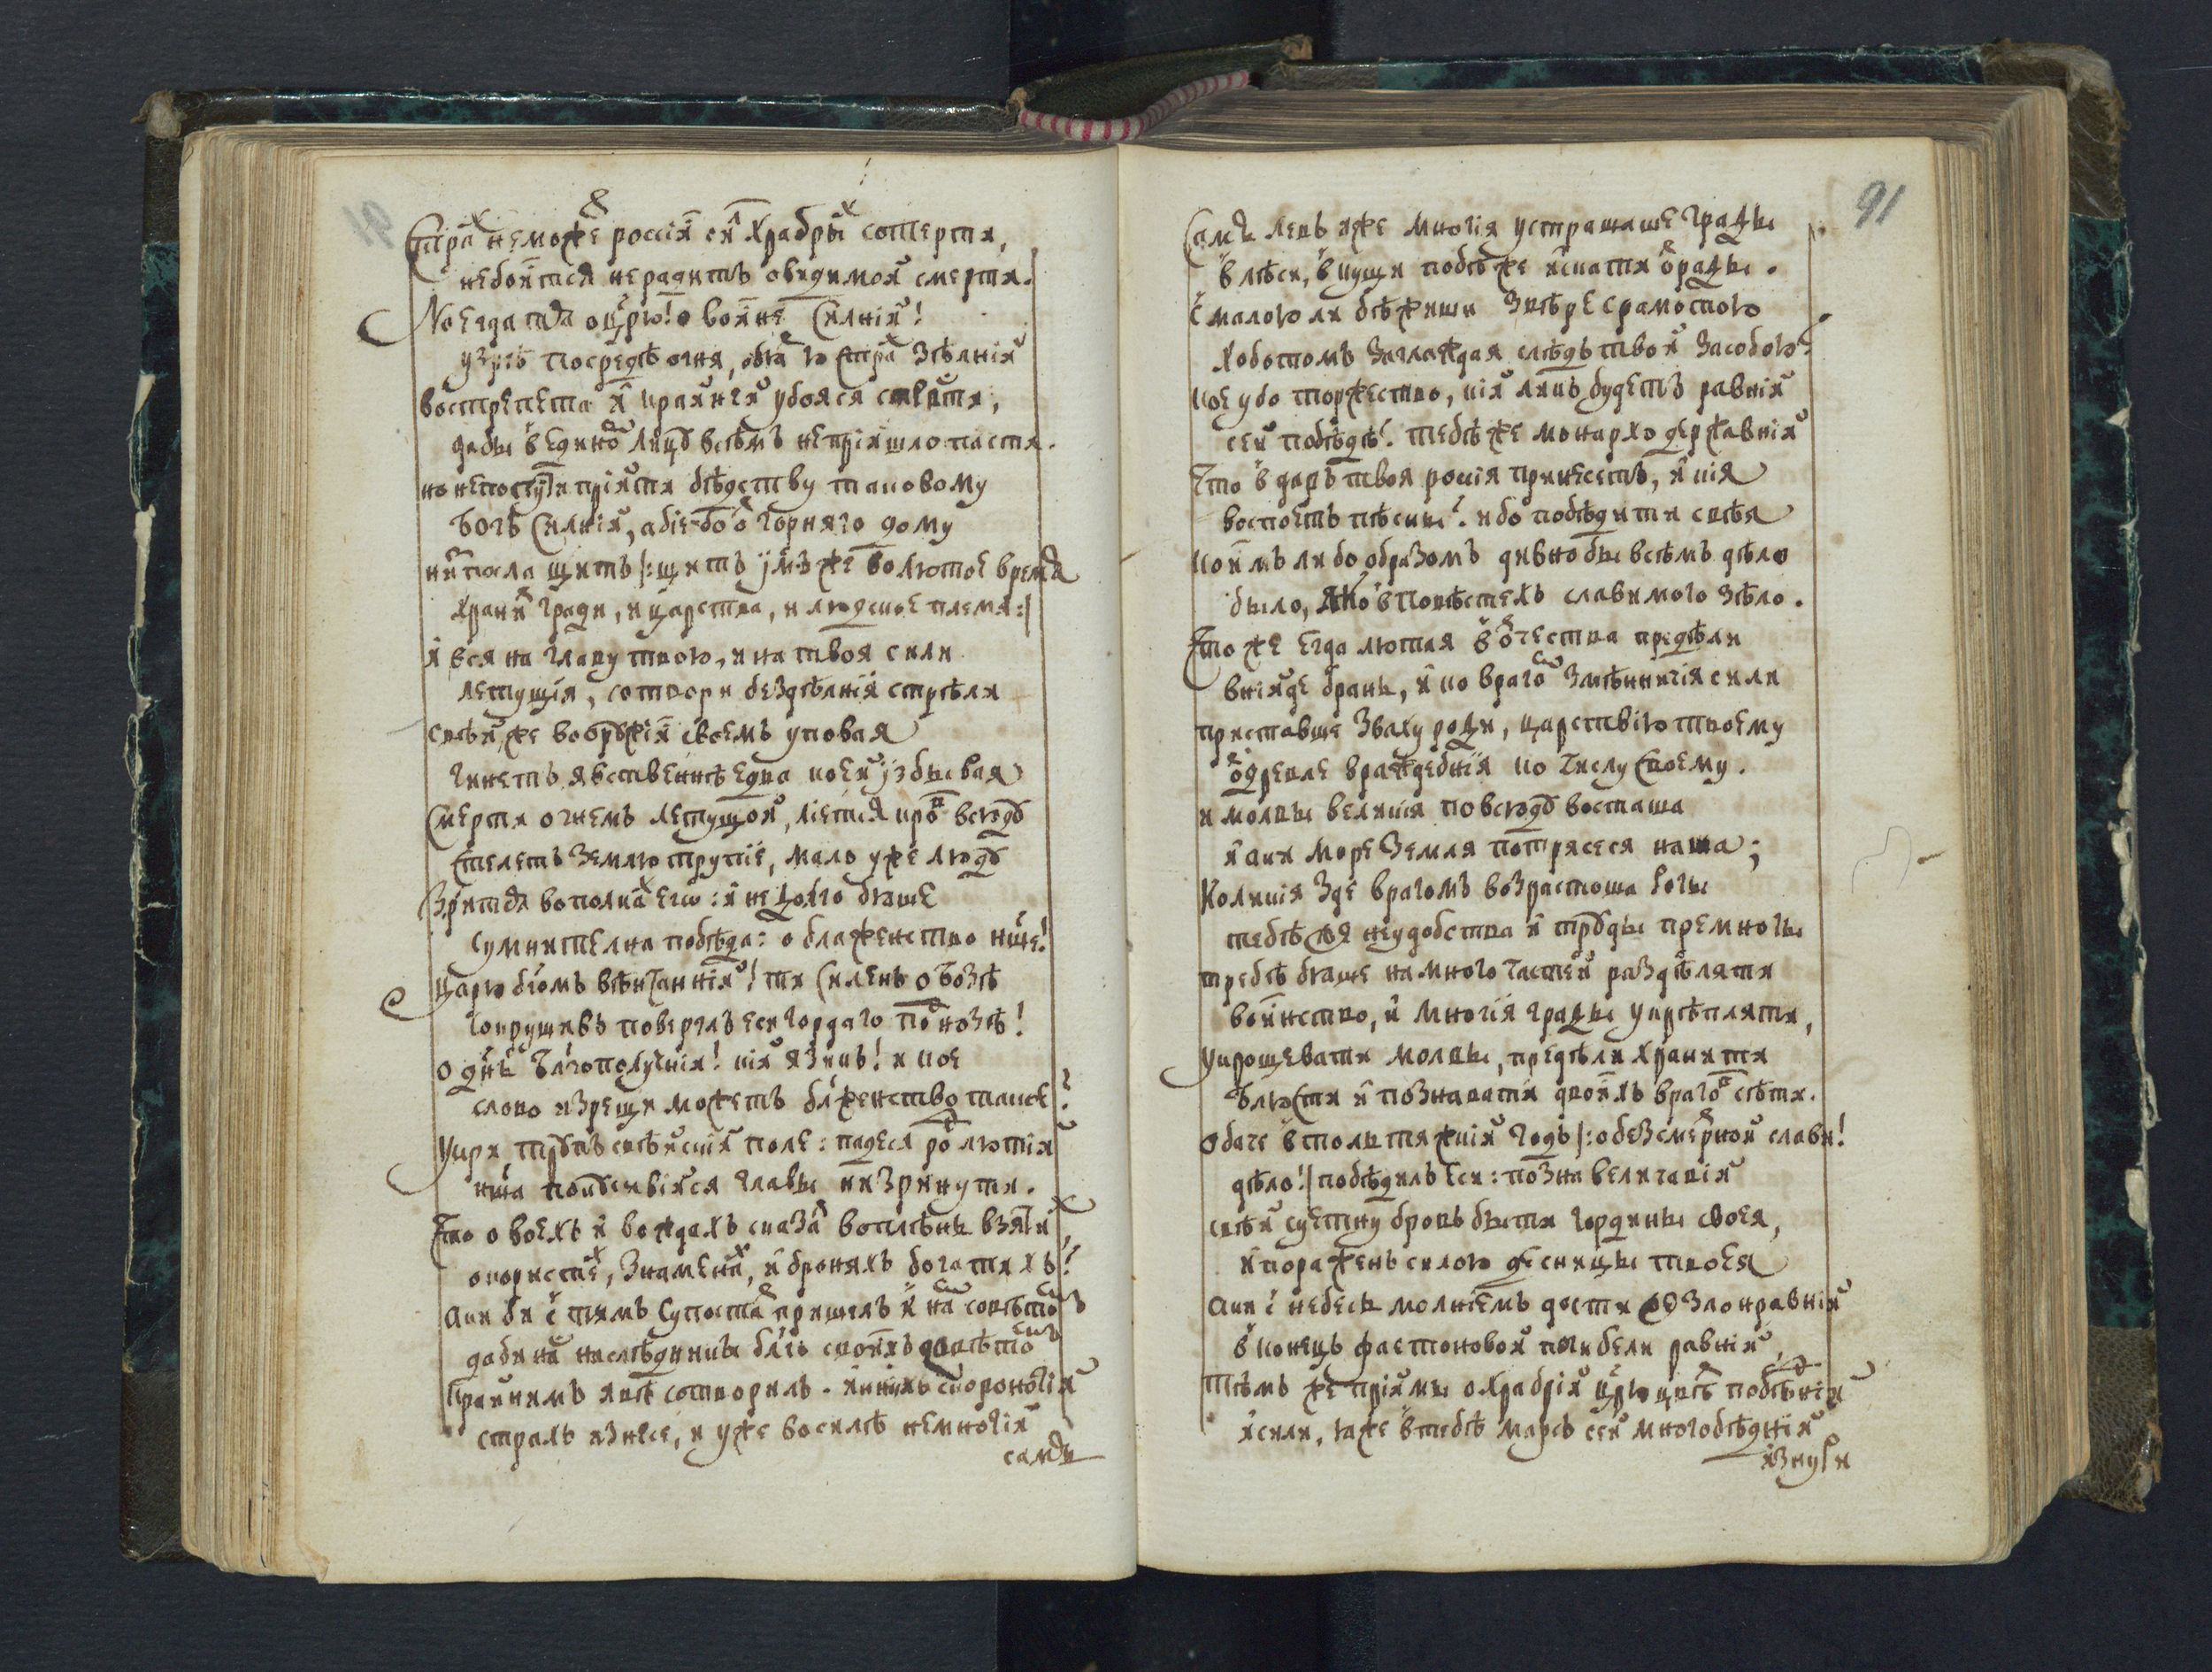 Страх неможе россійски храбрых сотерти,
небоится нерадить овидимой смерти.
Но егда тя о црю! о воине силній!
узрѣ посредѣ огня, обая ю страх зѣлній
вострепета и крайнея убояся страсти,
дабы в едином лицѣ всѣмъ непріишло пасти.
но непопусти пріяти бѣдству таковому
Богъ силній, абіе бо о горняго дому
низпосла щитъ /: щитъ имъ же во лютое время
храни гради, и царства, и людское племя :/
и вся на главу твою, и на твоя сили
летущія, сотвори бездѣлнія стрѣли
свѣй же воорѫжіи своемъ уповая
чинетъ явственнѣ едва коей избывая
смерти огнемъ летущой, ліется кровь всюдѣ
стелетъ землю трупіе, мало уже людѣ
зритъся во полках его: и не долго бяше
сумнителна побѣда: о блаженство наше!
царю бгомъ вѣнчанній! ти силенъ о бозѣ
сокрушивъ повергль еси гордаго под нозѣ!
о днь благополучнія! кій язикъ! и кое
слово изрещи можетъ блженство такое?
Укри трупъ свѣйскій поле: падеся род лютій
нша покусивійся главы низринути.
Что о воехъ и вождахъ сказа воплѣнъ взятих,
о користех, знаменах, и броняхъ богатихъ?
Аки би с тимъ супостат пришелъ и на совѣтом
даби на наслѣдники благъ своихъ
крайнимъ явѣ сотворилъ. и инихъ скороногій
страхъ изнесе, и уже восилѣ немногій
самъ
91
Самъ левъ иже многія устрашаше грады
в лѣси, в пущи побѣже искати отрады.
с малою ли бѣжиши звѣре срамостою
хоботомъ заглаждая слѣдъ твой засобою?
кое убо торжество, кій ликъ будетъ равній
сей побѣдѣ? тебѣ же монархо державній
Что в даръ твоя россія принесетъ, и кія
воспоетъ пѣсни? ибо побѣдити свѣя
коимъ либо образомъ дивно бы всѣмъ дѣло
было, яко в повѣстехъ славимого зѣло.
Что же егда лютая в отчества предѣли
внійде брань, и ко врагом змѣнничія сили
приставше зваху роди, царствію твоему
от древле враждебнія по числу своему.
и молвы великія повсюдѣ восташа
и аки море земля потрясеся наша;
Коликія зде врагомъ возрастоша роги
тебѣ же неудобства и трѫды премноги
требѣ бяше на много частей раздѣляти
воинство, и многія грады укрѣпляти,
укрощевати молвы, предѣли хранити
блюсти и познавати двоихъ врагов сѣти.
обаче в полътяжкій годъ /: о безсмертной слави!
дѣло! / побѣдилъ еси: позна величавій
свѣй суетну бровъ быти гординны своея,
и пораженъ силою десницы твоея
Аки с небесъ молніемъ дости злонравній
в конецъ фаетоновой погибели равній,
Тѣмъ же пріими о храбрій црю цвѣт побѣдній
и сили, яже в тебѣ марсъ сей многобѣдній
изкуси